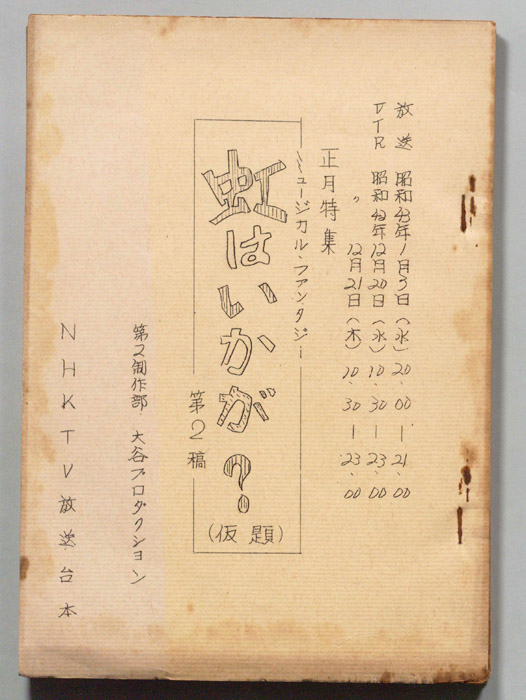 放送 昭和43年1月3日(水)20.00—21.00
VTR 昭和42年12月20日(水)10.30—23.00
〃 12月21日(木)10.30—23.00
正月特集
ミュージカル・ファンタジー
虹はいかが?
(仮題)
第2稿
第2制作部 大谷プロダクション
NHKTV放送台本